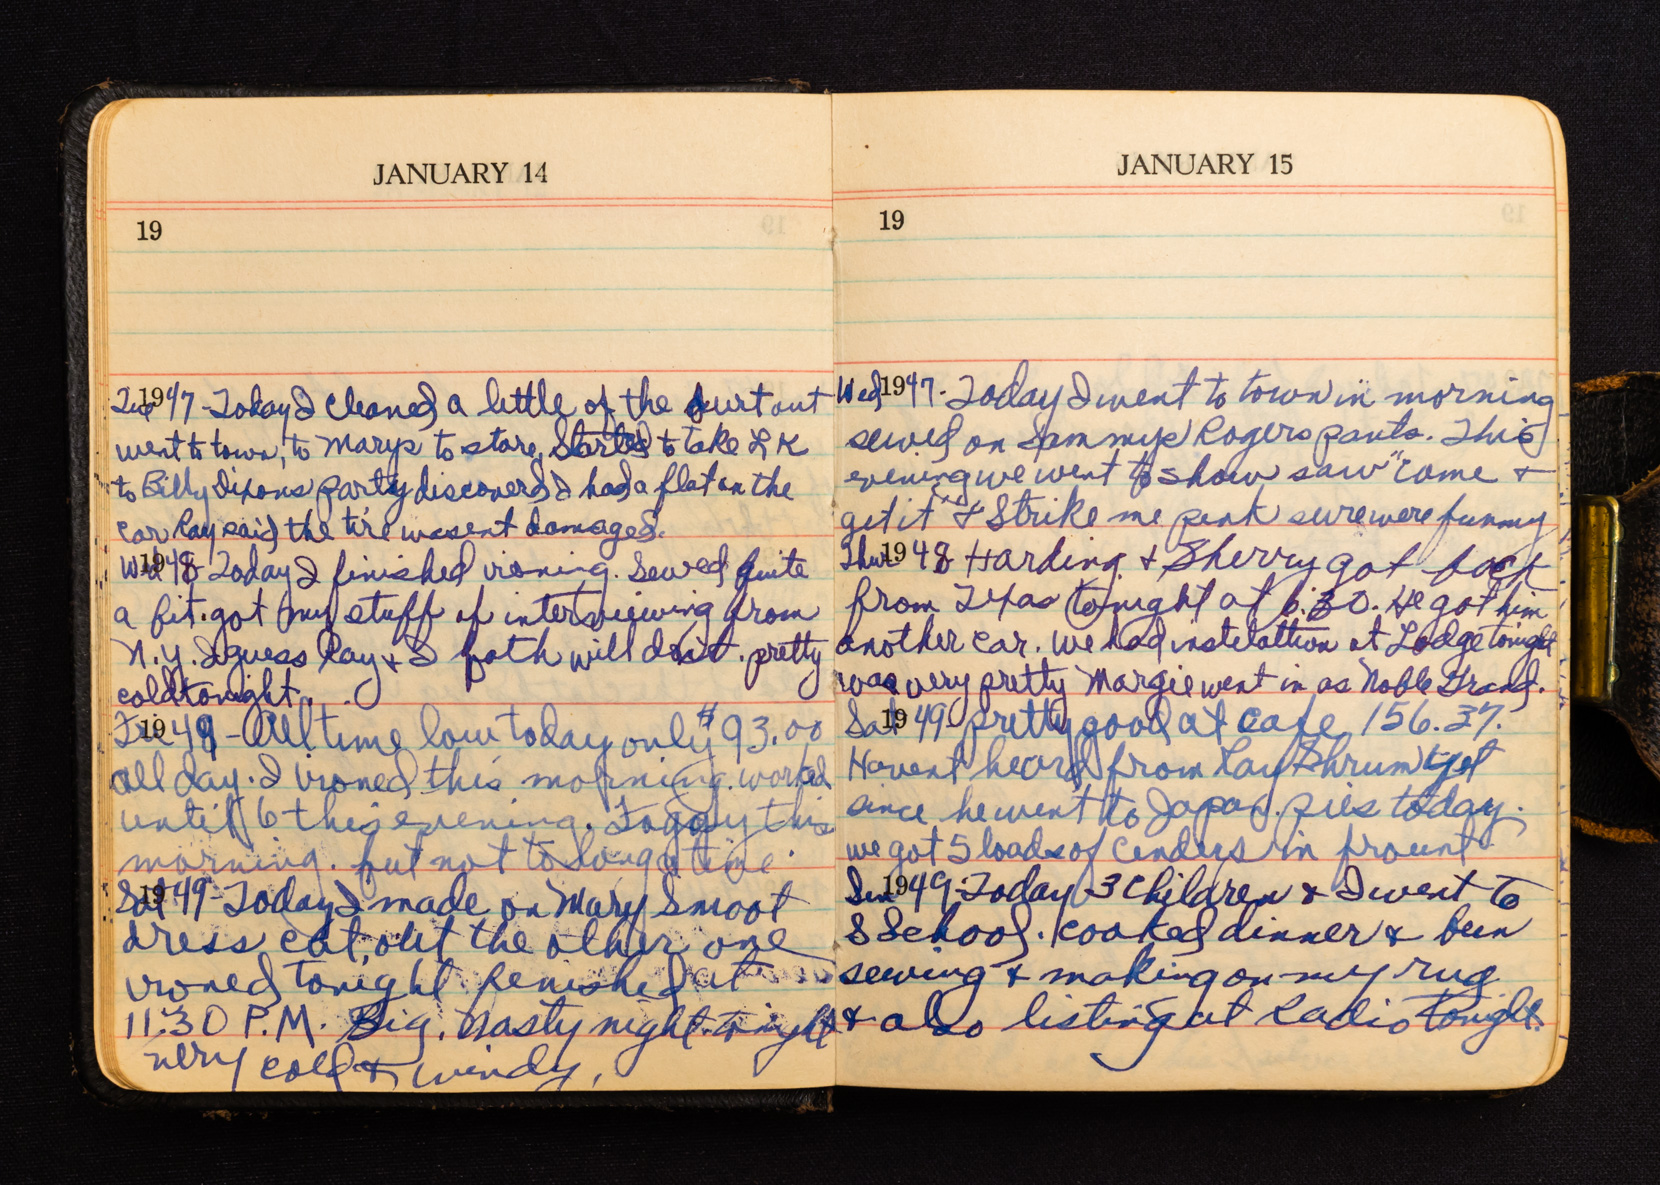 JANUARY 14
19
Tue 1947 - Today I cleaned a little of the durt out
went to town, to Marys to store, Started to take L K
to Billy Dixons party discovered I had a flat on the
car Ray said the tire wasent damaged.
Wed 1948 Today I finished ironing. Sewed quite
a bit. got my stuff of interviewing from
N.y. I guess Ray & I both will do it. pretty
cold tonight.
Fri 1949 - All time low today only $93.00
all day. I ironed this morning. worked
until 6 this evening. Foggy this
morning. but not to longa time.
Sat 1949 - Today I made on Mary Smoot
dress cut out the other one
ironed tonight finished at
11:30 P.M. Big. Nasty night. tonight
very cold & windy,
JANUARY 15
19
Wed 1947 - Today I went to town in morning
sewed on Sammye Rogers pants. This
evening we went to show saw "Come &
get it" & Strike me pink sure were funny
Thur 1948 Harding & Sherry got back
from Texas tonight at 6:30. He got him
another car. we had instelattion at Lodge tonight
was very pretty Margie went in as Noble Grand.
Sat 1949 - pretty good at cafe 156.37.
Havent heard from Ray Shrum yet
since he went to Japan. pies today.
we got 5 loads of cinders in frount
Sun 1949 - Today 3 Children & I went to
S School. cooked dinner & been
sewing & making on my rug
& also listing at Radio tonight.